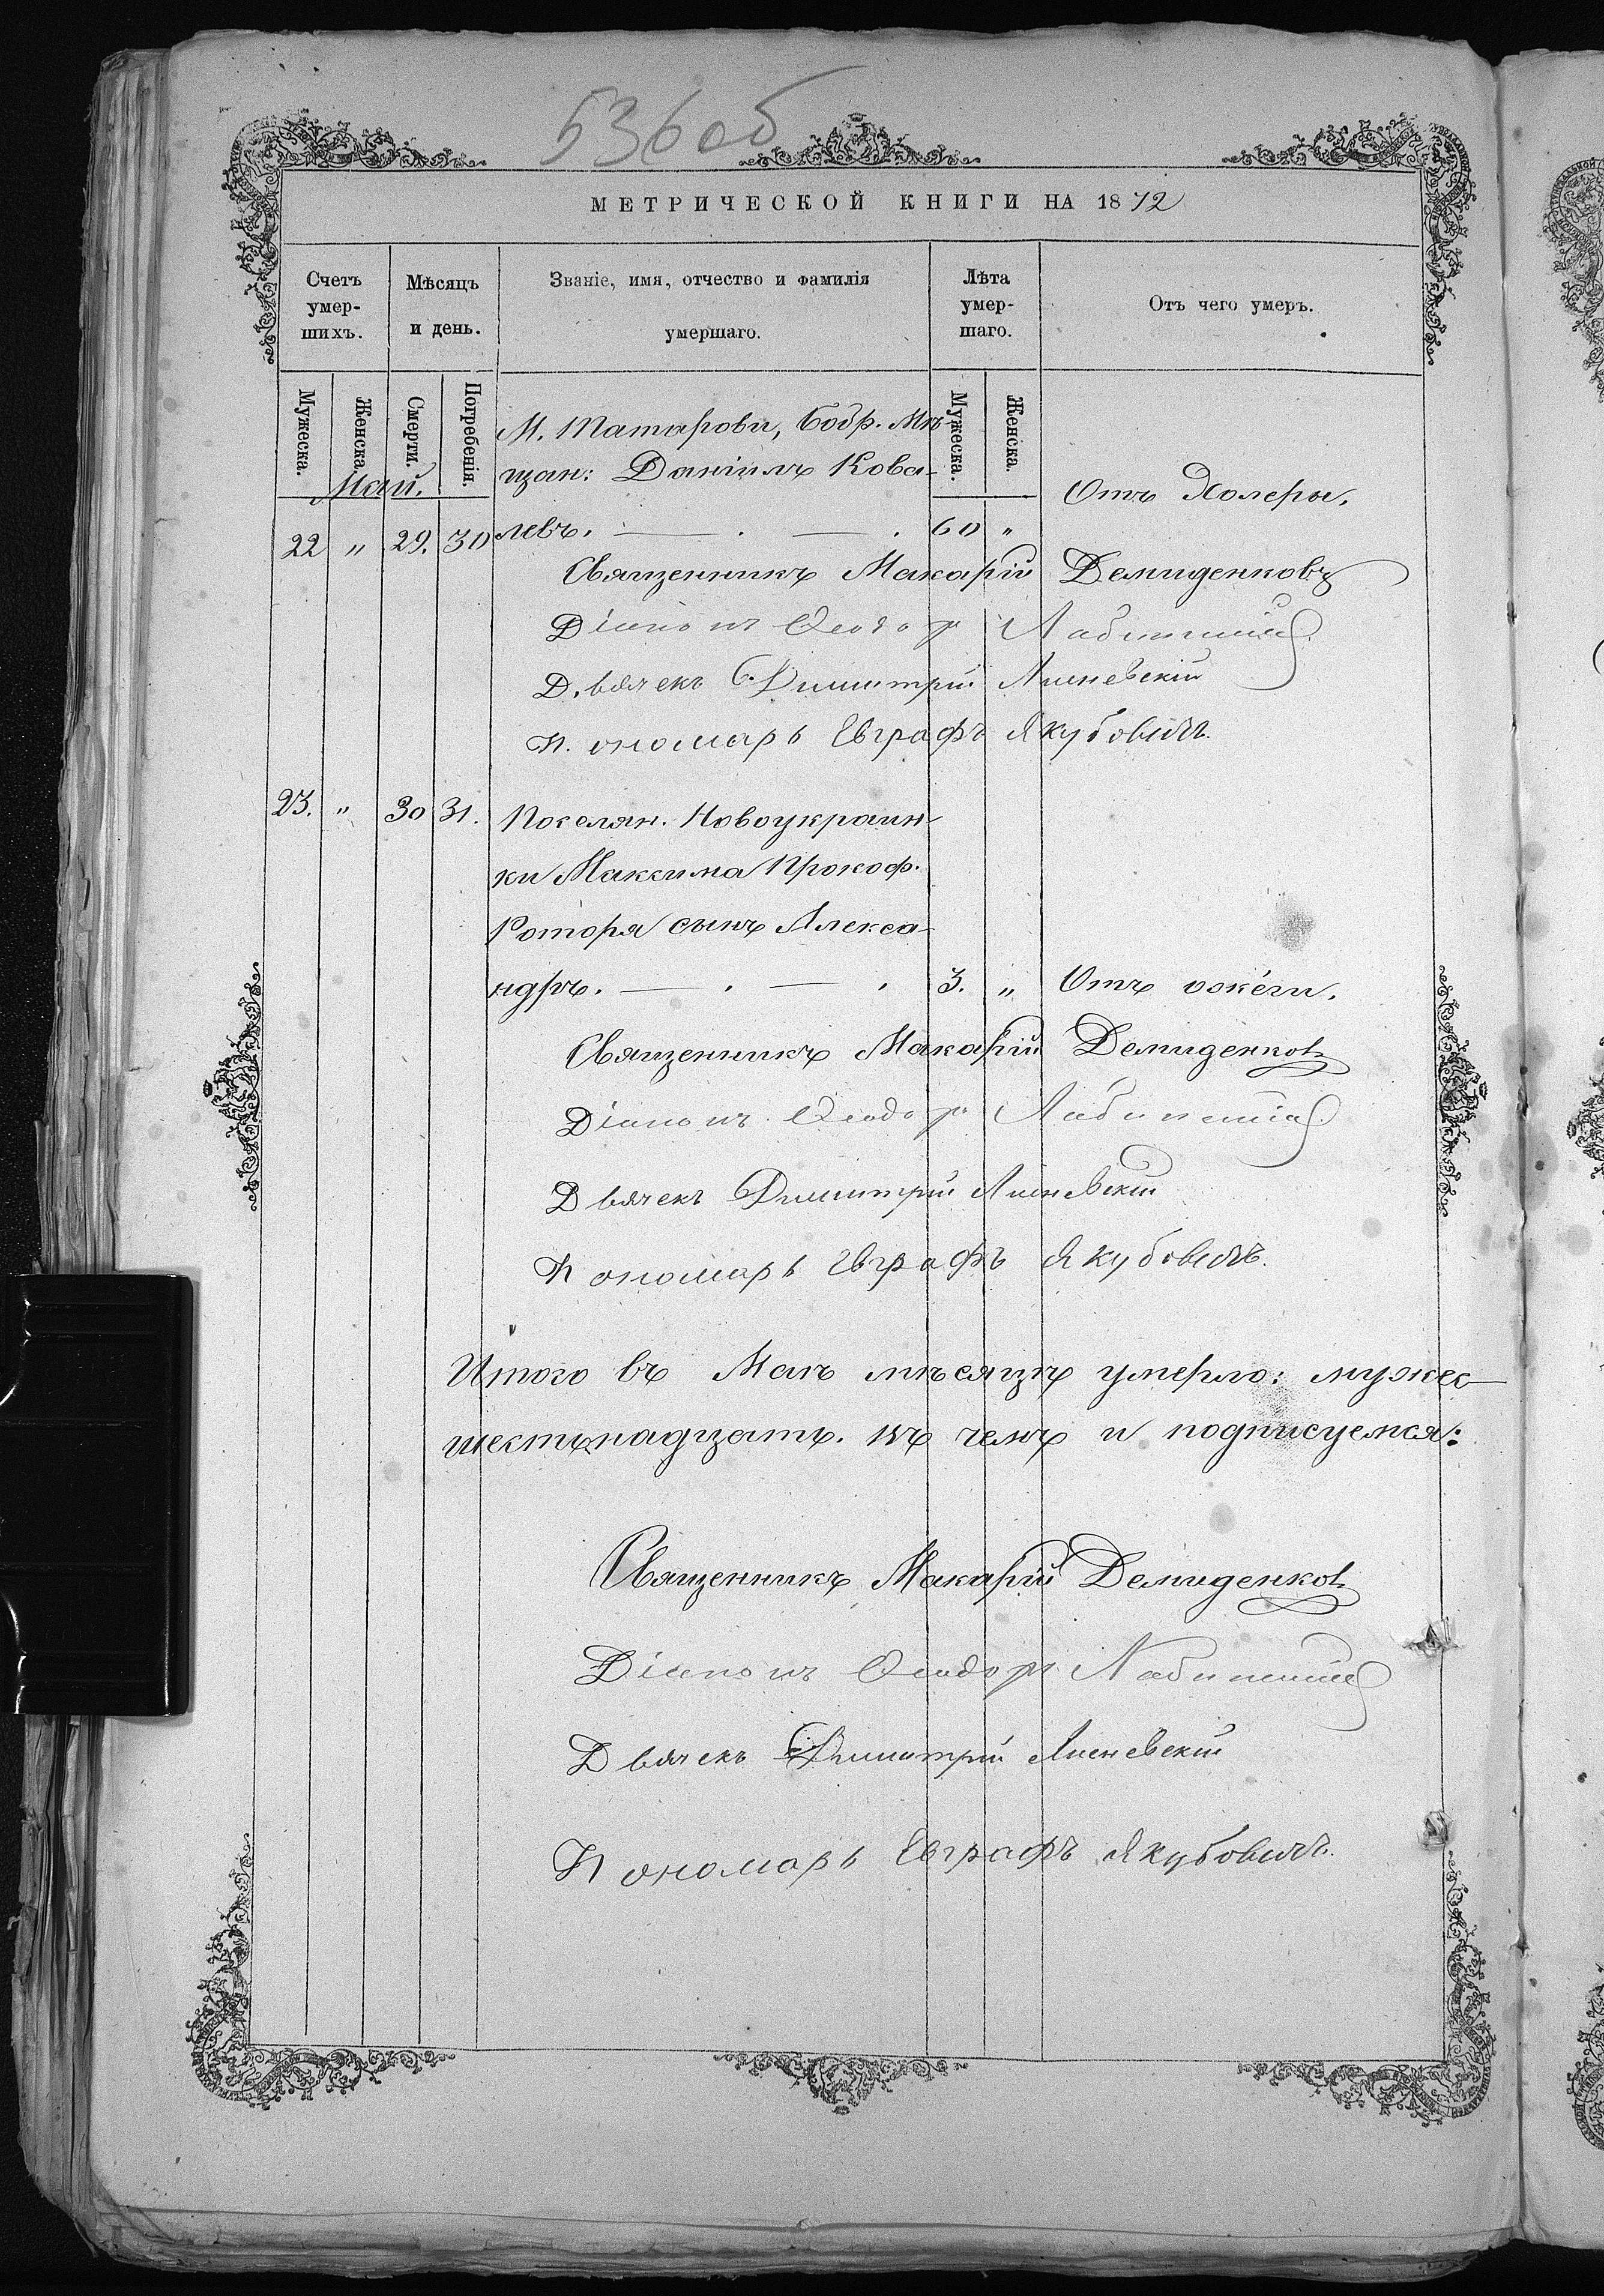 536 об
МЕТРИЧЕСКОЙ КНИГИ НА 1872
Счетъ умер-шихъ.
Мѣсяцъ и день.
Званіе, имя, отчество и фамилія умершаго.
Лѣта умер-шаго.
Отъ чего умеръ.
Мужеска. Женска. Смерти. Погребенія. Мужеска. Женска.
Май.
М. Татаровы, Бобр. Мѣ-
щан: Даніилъ Кова-
22 " 29. 30 левъ. 60 " Отъ Холеры.
Священникъ Макарій Демиденковъ
Діаконъ Ѳеодоръ
Д. ьячекъ Димитрій Лисневскій
П. ономарь Евграфъ Якубовичъ.
23. " 30 31. Поселян. Новоукраин-
ки Максима Прокоф.
Роторя сынъ Алекса-
ндръ. 3. " Отъ ожёги.
Священникъ Макарій Демиденковъ
Діаконъ Ѳеодоръ
Дьячекъ Димитрій Лисневскій
Пономарь Евграфъ Якубовичъ.
Итого въ Маѣ мѣсяцѣ умерло: мужес-
шестьнадцать. въ чемъ и подписуемся:
Священникъ Макарій Демиденковъ
Діаконъ Ѳеодоръ
Дьячекъ Димитрій Лисневскій
Пономарь Евграфъ Якубовичъ.